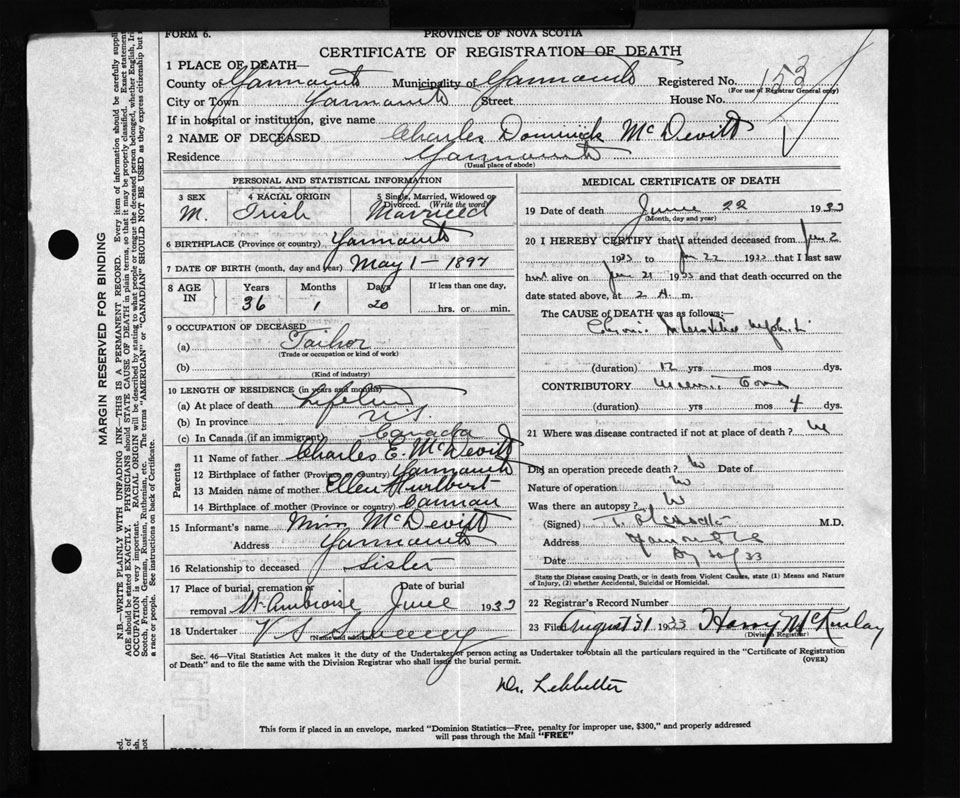 FORM 6.
PROVINCE OF NOVA SCOTIA
CERTIFICATE OF REGISTRATION OF DEATH
1 PLACE OF DEATH—
County of Yarmouth Municipality of Yarmouth Registered No. 153
(For use of Registrar General only)
City or Town Yarmouth Street House No.
If in hospital or institution, give name
2 NAME OF DECEASED Charles Dominick McDevitt
Residence Yarmouth
(Usual place of abode)
PERSONAL AND STATISTICAL INFORMATION
3 SEX 4 RACIAL ORIGIN 5 Single, Married, Widowed or Divorced. (Write the word)
M. Irish Married
6 BIRTHPLACE (Province or country) Yarmouth
7 DATE OF BIRTH (month, day and year) May 1 — 1897
8 AGE IN Years Months Days If less than one day,
36 1 20 hrs. or min.
9 OCCUPATION OF DECEASED
(a) Tailor
(Trade or occupation or kind of work)
(b)
(Kind of industry)
10 LENGTH OF RESIDENCE (in years and months)
(a) At place of death Lifetime
(b) In province
(c) In Canada (if an immigrant) Canada
Parents
11 Name of father Charles E. McDevitt
12 Birthplace of father (Province or country) Yarmouth
13 Maiden name of mother Ellen Hurlbert
14 Birthplace of mother (Province or country)
15 Informant's name Miss McDevitt
Address Yarmouth
16 Relationship to deceased Sister
17 Place of burial, cremation or removal St. Ambroise Date of burial June 1933
18 Undertaker V S Sweeney
(Name and address)
MEDICAL CERTIFICATE OF DEATH
19 Date of death June 22 1933
(Month, day and year)
20 I HEREBY CERTIFY that I attended deceased from Jan 2
1933 to 22 1933 that I last saw
him alive on June 21 1933 and that death occurred on the
date stated above, at 2 A. m.
The CAUSE OF DEATH was as follows:—
Chronic
(duration) 12 yrs. mos. dys.
CONTRIBUTORY Coma
(duration) yrs mos 4 dys.
21 Where was disease contracted if not at place of death?
Did an operation precede death? No Date of
Nature of operation No
Was there an autopsy? No
(Signed) M.D.
Address Yarmouth
Date 33
State the Disease causing Death, or in death from Violent Causes, state (1) Means and Nature
of Injury, (2) whether Accidental, Suicidal or Homicidal.
22 Registrar's Record Number
23 Filed August 31 1933 Harry McKinlay
(Division Registrar)
Sec. 46—Vital Statistics Act makes it the duty of the Undertaker or person acting as Undertaker to obtain all the particulars required in the "Certificate of Registration
of Death" and to file the same with the Division Registrar who shall issue the burial permit.
(OVER)
Dr. Lebbetter
This form if placed in an envelope, marked "Dominion Statistics—Free, penalty for improper use, $300," and properly addressed
will pass through the Mail "FREE"
MARGIN RESERVED FOR BINDING
N.B.—WRITE PLAINLY WITH UNFADING INK—THIS IS A PERMANENT RECORD. Every item of information should be carefully
AGE should be stated EXACTLY. PHYSICIANS should STATE CAUSE OF DEATH in plain terms, so that it may be properly classified. Exact statement
OCCUPATION is very important. RACIAL ORIGIN will be described by stating to what people or tongue the deceased person belonged, whether English,
Scotch, French, German, Russian, Ruthenian, etc. The terms "AMERICAN" or "CANADIAN" SHOULD NOT BE USED as they express citizenship but
a race or people. See instructions on back of Certificate.